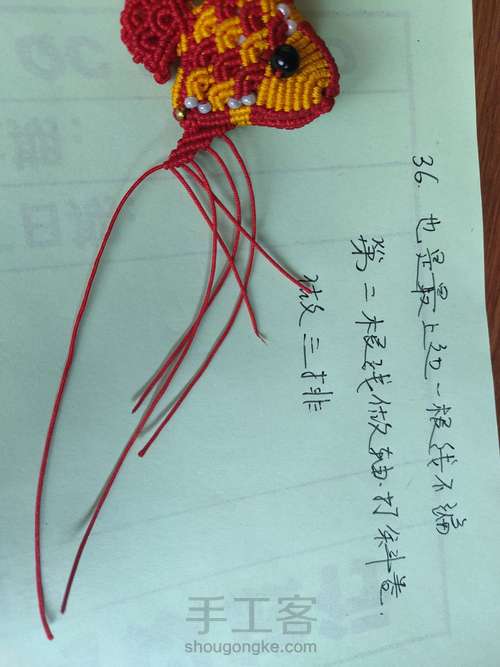 36. 也是最上边一根线不编
第二根线做轴.打斜卷.
做三排
手工客
shougongke.com